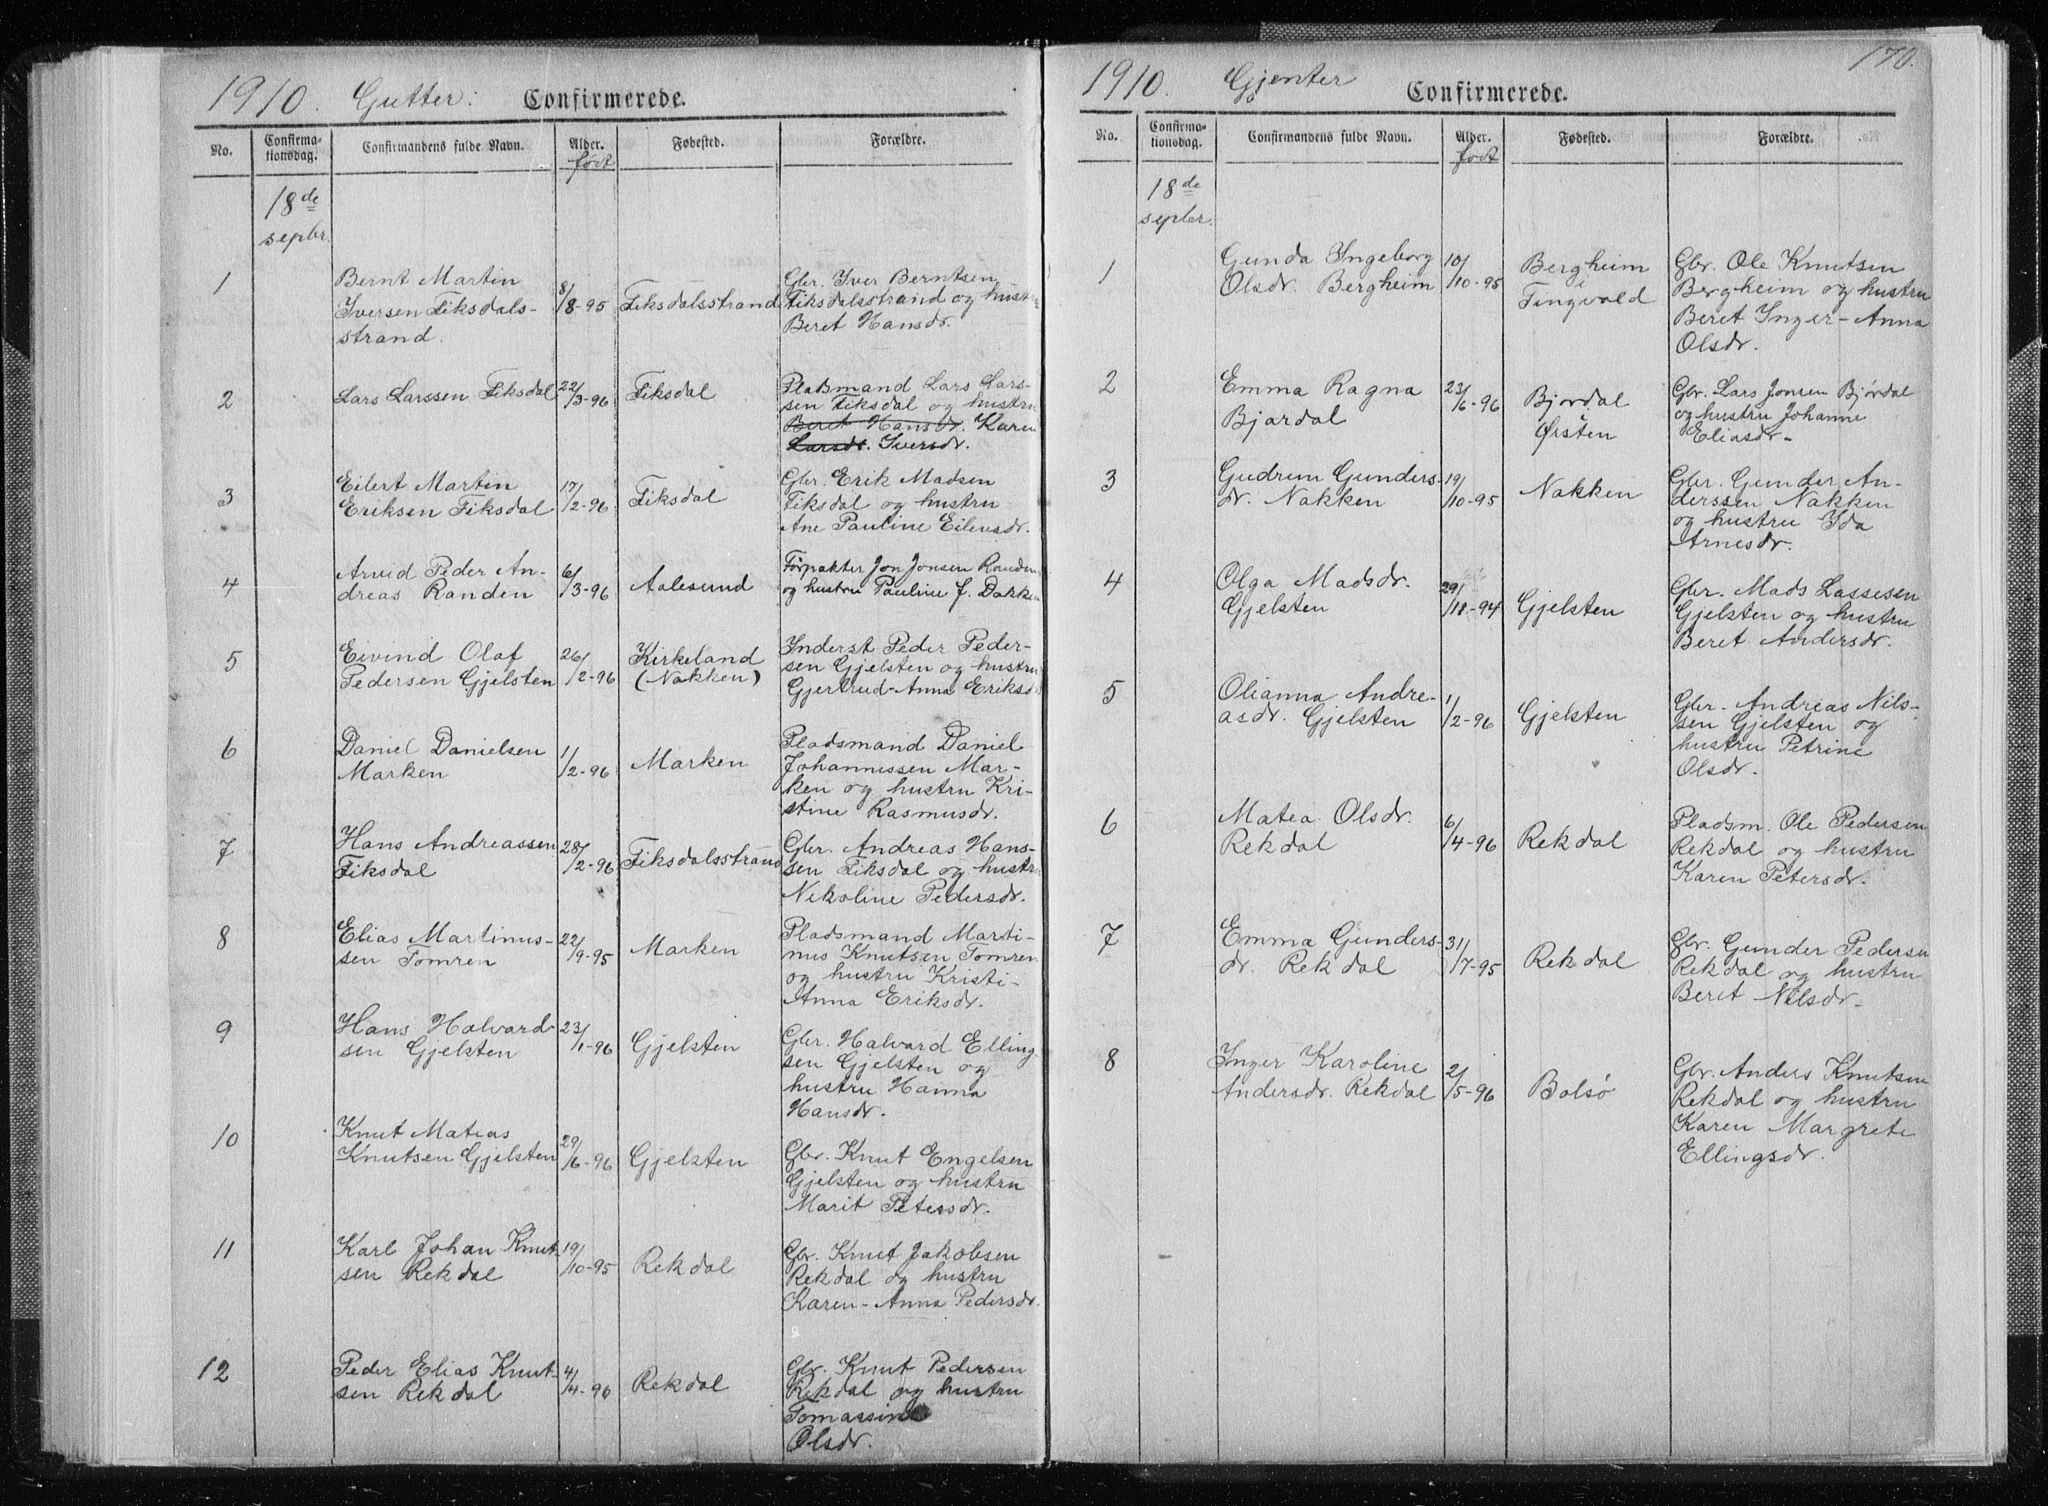 1910. Gutter: Confirmerede.
No. Confirma-
tionsdag. Confirmandens fulde Navn. Alder. Fødested. Forældre.
født
18de
septbr.
1 Bernt Martin
Iversen Fiksdals-
strand. 8/8-95 Fiksdalsstrand Gbr. Iver Berntsen
Fiksdalsstrand og hustru
Beret Hansdr.
2 Lars Larssen Fiksdal 22/3-96 Fiksdal Pladsmand Lars Lars-
sen Fiksdal og hustru
Beret Hansdr. Karen
Larsdr. Iversdr.
3 Eilert Martin
Eriksen Fiksdal 17/2-96 Fiksdal Gbr. Erik Madsen
Fiksdal og hustru
Ane Pauline Eilersdr.
4 Arvid Peder An-
dreas Randen 6/3-96 Aalesund Førpakter Jon Jonsen Randen
og hustru Pauline J. Dakken
5 Eivind Olaf
Pedersen Gjelsten 26/2-96 Kirkeland
(Nakken) Inderst Peder Peder-
sen Gjelsten og hustru
Gjertrud-Anna Eriksd
6 Daniel Danielsen
Marken 1/2-96 Marken Pladsmand Daniel
Johannessen Mar-
ken og hustru Kri-
stine Rasmusdr.
7 Hans Andreassen
Fiksdal 28/2-96 Fiksdalsstrand Gbr. Andreas Hans-
sen Fiksdal og hustru
Nikoline Pedersdr.
8 Elias Martinus-
sen Tomren 22/9-95 Marken Pladsmand Marti-
nus Knutsen Tomren
og hustru Kristi-
Anna Eriksdr.
9 Hans Halvard-
sen Gjelsten 23/1-96 Gjelsten Gbr. Halvard Elling-
sen Gjelsten og
hustru Hanna
Hansdr.
10 Knut Matias
Knutsen Gjelsten 29/6-96 Gjelsten Gbr. Knut Engelsen
Gjelsten og hustru
Marit Petersdr.
11 Karl Johan Knut-
sen Rekdal 19/10-95 Rekdal Gbr. Knut Jakobsen
Rekdal og hustru
Karen-Anna Pedersdr.
12 Peder Elias Knut-
sen Rekdal 4/4-96 Rekdal Gbr. Knut Pedersen
Rekdal og hustru
Tomassine
Olsdr.
170.
1910. Gjenter Confirmerede.
No. Confirma-
tionsdag. Confirmandens fulde Navn. Alder. Fødested. Forældre.
født
18de
septbr.
1 Gunda Ingeborg
Olsdr. Bergheim 10/10-95 Bergheim
i
Tingvold Gbr. Ole Knutsen
Bergheim og hustru
Beret Inger-Anna
Olsdr.
2 Emma Ragna
Bjørdal 23/6-96 Bjørdal
i
Ørsten Gbr. Lars Jonsen Bjørdal
og hustru Johanne
Eliasdr-
3 Gudrun Gunders-
dr. Nakken 19/10-95 Nakken Gbr. Gunder An-
derssen Nakken
og hustru Ida
Arnesdr.
4 Olga Madsdr.
Gjelsten Gjelsten Gbr. Mads Lassesen
Gjelsten og hustru
Beret Andersdr.
5 Olianna Andre-
asdr. Gjelsten 1/2-96 Gjelsten Gbr. Andreas Nils-
sen Gjelsten og
hustru Petrine
Olsdr.
6 Matea Olsdr.
Rekdal 6/4-96 Rekdal Pladsm. Ole Pedersen
Rekdal og hustru
Karen Petersdr.
7 Emma Gunders-
dr. Rekdal 31/7-95 Rekdal Gbr. Gunder Pedersen
Rekdal og hustru
Beret Nilsdr.
8 Inger Karoline
Andersdr. Rekdal 2/5-96 Bolsø Gbr. Anders Knutsen
Rekdal og hustru
Karen Margrete
Ellingsdr.